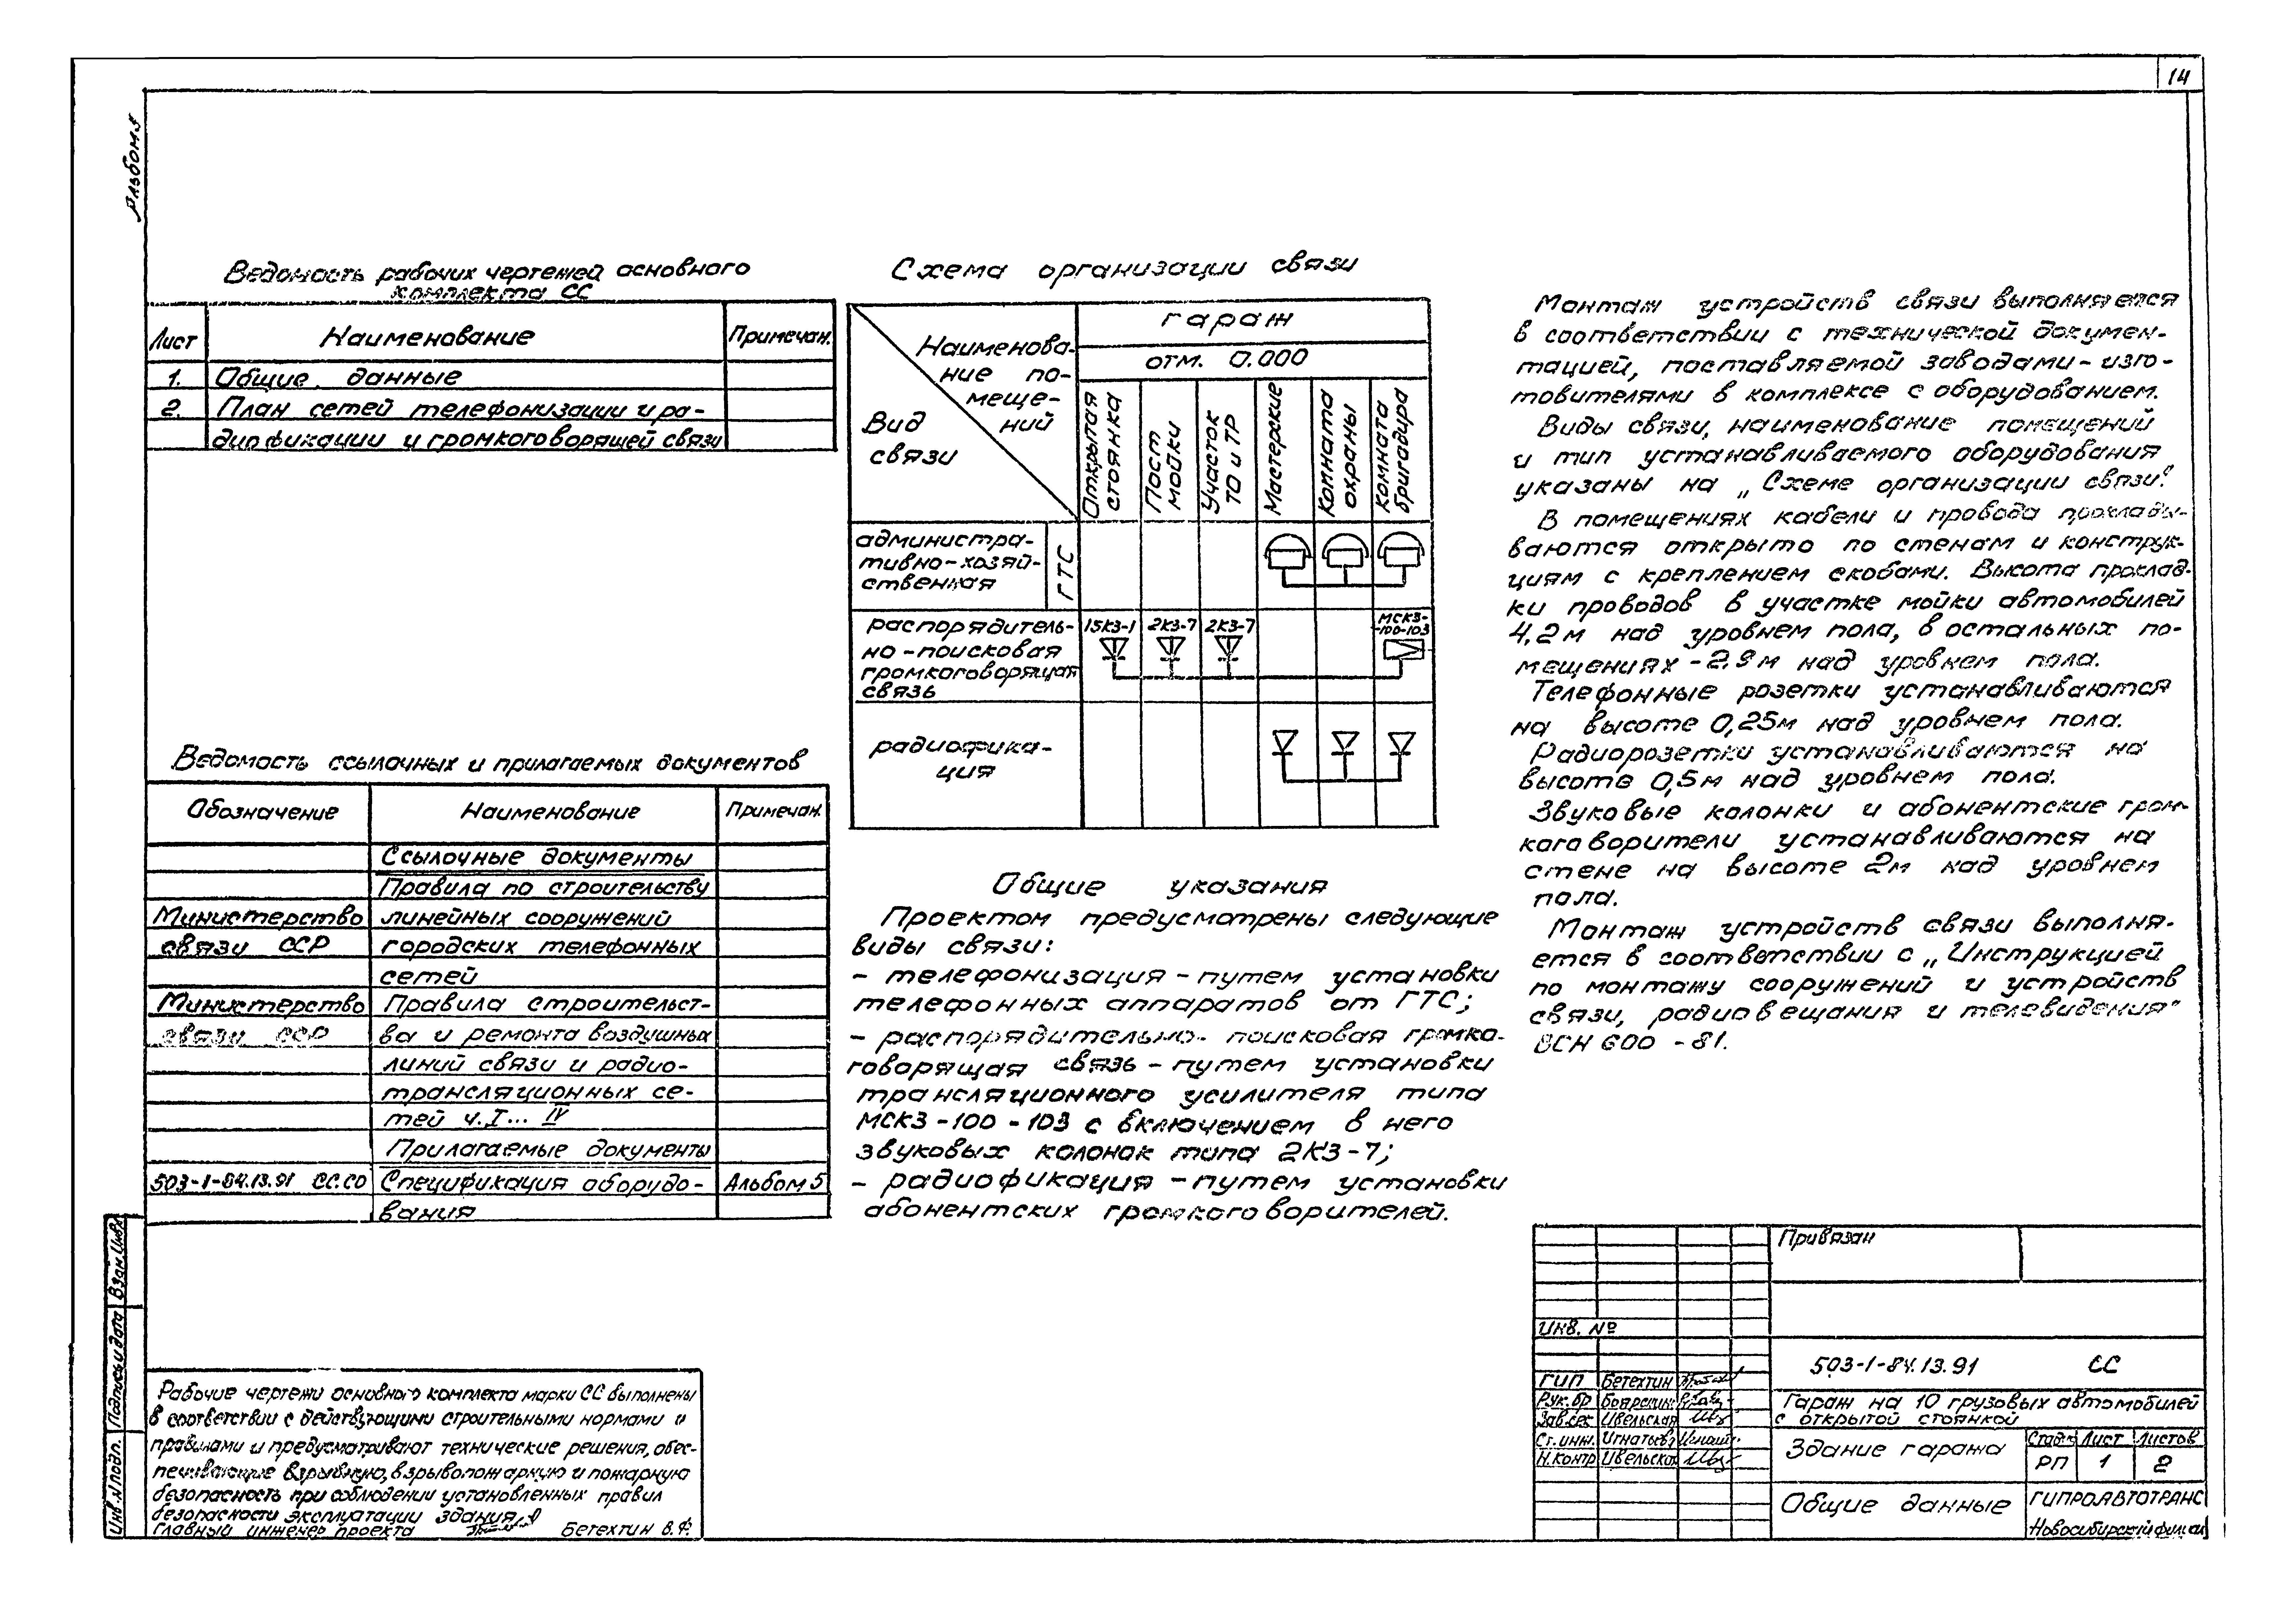 14
Альбом 5
Ведомость рабочих чертежей основного
комплекта СС
Лист
Наименование
Примечан.
1.
Общие данные
2.
План сетей телефонизации и ра-
диофикации и громкоговорящей связи
Ведомость ссылочных и прилагаемых документов
Обозначение
Наименование
Примечан.
Ссылочные документы
Правила по строительству
Министерство
линейных сооружений
связи СССР
городских телефонных
сетей
Министерство
Правила строительст-
связи СССР
ва и ремонта воздушных
линий связи и радио-
трансляционных се-
тей ч. I... IV
Прилагаемые документы
503-1-84.13.91 СС.СО
Спецификация оборудо-
Альбом 5
вания
Схема организации связи
Наименова-
ние по-
меще-
ний
Вид
связи
гараж
отм. 0.000
Открытая
стоянка
Пост
мойки
Участок
ТО и ТР
Мастерские
Комната
охраны
комната
бригадира
администра-
тивно-хозяй-
ственная
ГТС
распорядитель-
но-поисковая
громкоговорящая
связь
15КЗ-1
2КЗ-7
2КЗ-7
МСКЗ-
-100-103
радиофика-
ция
Общие указания
Проектом предусмотрены следующие
виды связи:
- телефонизация - путем установки
телефонных аппаратов от ГТС;
- распорядительно-поисковая громко-
говорящая связь - путем установки
трансляционного усилителя типа
МСКЗ-100-103 с включением в него
звуковых колонок типа 2КЗ-7;
- радиофикация - путем установки
абонентских громкоговорителей.
Монтаж устройств связи выполняется
в соответствии с технической докумен-
тацией, поставляемой заводами-изго-
товителями в комплексе с оборудованием.
Виды связи, наименование помещений
и тип устанавливаемого оборудования
указаны на „Схеме организации связи".
В помещениях кабели и провода проклады-
ваются открыто по стенам и конструк-
циям с креплением скобами. Высота проклад-
ки проводов в участке мойки автомобилей
4,2м над уровнем пола, в остальных по-
мещениях - 2,9м над уровнем пола.
Телефонные розетки устанавливаются
на высоте 0,25м над уровнем пола.
Радиорозетки устанавливаются на
высоте 0,5м над уровнем пола.
Звуковые колонки и абонентские гром-
коговорители устанавливаются на
стене на высоте 2м над уровнем
пола.
Монтаж устройств связи выполня-
ется в соответствии с „Инструкцией
по монтажу сооружений и устройств
связи, радиовещания и телевидения"
ВСН 600 - 81.
Взам. Инв.№
Подпись и дата
Инв. № подл.
Рабочие чертежи основного комплекта марки СС выполнены
в соответствии с действующими строительными нормами и
правилами и предусматривают технические решения, обес-
печивающие взрывную, взрывопожарную и пожарную
безопасность при соблюдении установленных правил
безопасности эксплуатации здания
Главный инженер проекта Бетехтин В.Ф.
Привязан
Инв. №
503-1-84.13.91 СС
ГИП Бетехтин
Рук. бр Боярский
Зав.сек Ивельская
Ст. инж. Игнатьева
Н.контр Ивельская
Гараж на 10 грузовых автомобилей
с открытой стоянкой
Здание гаража
Стадия Лист Листов
РП 1 2
Общие данные
ГИПРОАВТОТРАНС
Новосибирский филиал